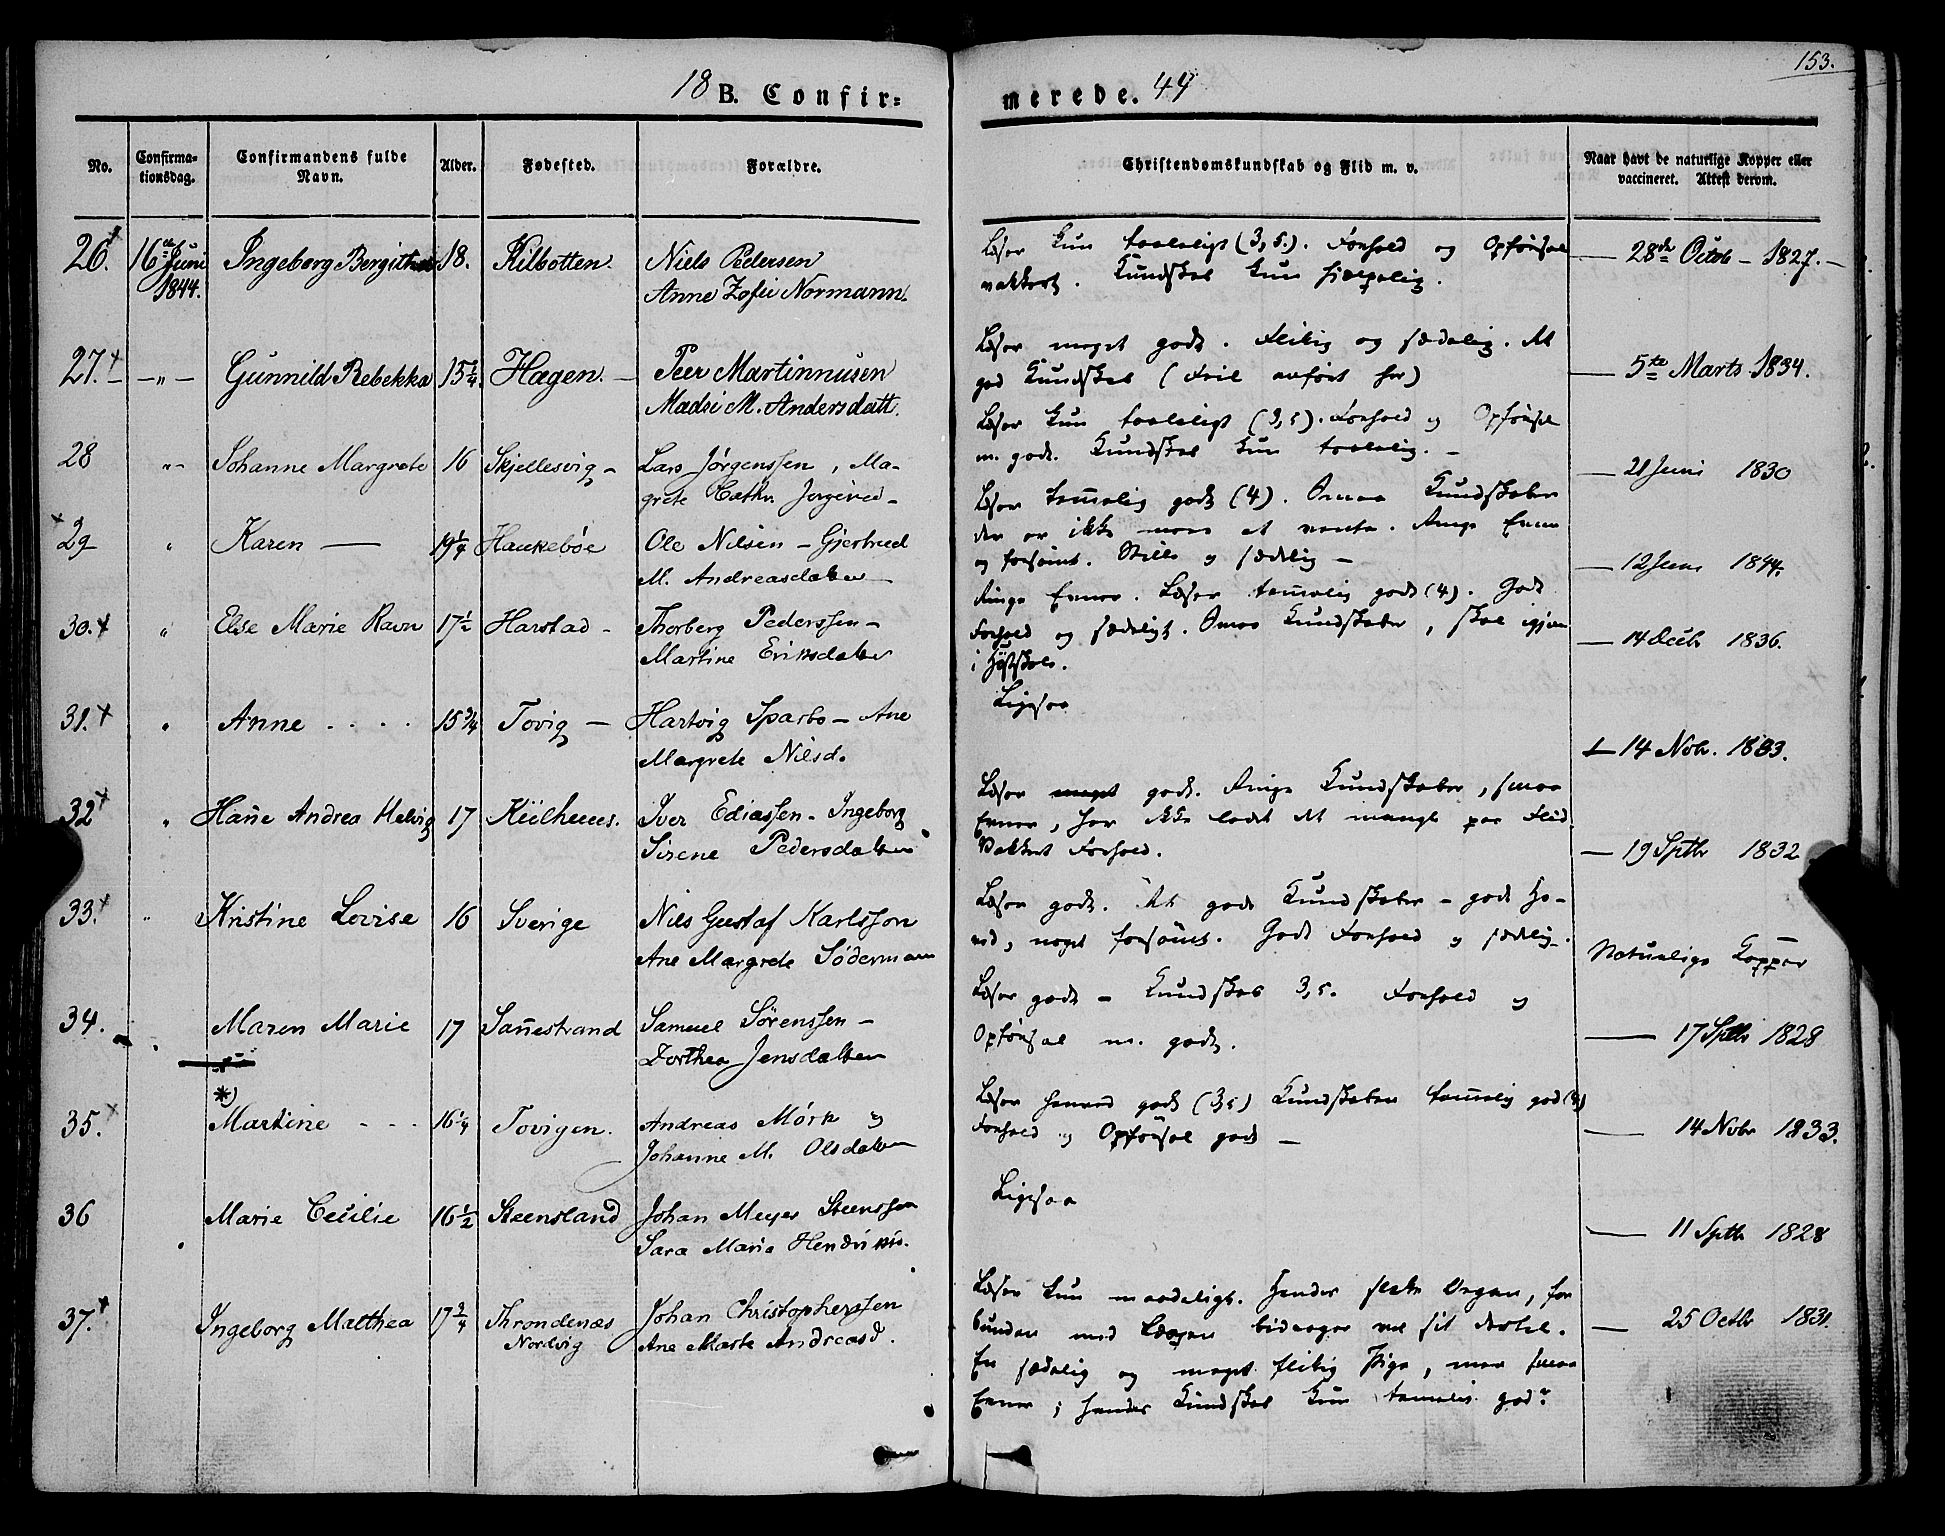 153.
18 B. Confir=
merede. 44
No.
Confirma-
tionsdag.
Confirmandens fulde
Navn.
Alder.
Fødested.
Forældre.
Christendomskundskab og Flid m. v.
Naar havt de naturlige Kopper eller
vaccineret. Attest derom.
26. 16de Juni Ingeborg Bergitha 18. Kilbotten. Niels Pedersen
1844. Anne Zofie Normann.
Læser kun taaleligt (3,5.). Forhold og Opførsel
vakkert. Kundskab kun
28de Octob - 1827. -
27. + - " - Gunnild Rebekka 15 1/4. Hagen. - Peer Martinnusen
Madsi M. Andersdatt.
Læser meget godt. Flittig og sædelig. Et
god Kundskab
5te Marts 1834.
28 " - Johanne Margrete 16 Skjellesvig - Lars Jørgenssen, Ma-
grete Cathr.
Læser kun taaleligt (3,5). Forhold og Opførsel
m. godt. Kundskab kun taalelig. -
21 Juni 1830
+ 29 " Karen - 19 1/4 Haukebøe Ole Nilsen - Gjertrued
M. Andreasdatter
Læser temelig godt (4). Smaa Kundskaber
der er ikke mere at vente. Ringe Evner
og forsømt. Stille og sædelig -
12 Juni 1844.
30. + " Else Marie Ravn 17 1/2 Harstad - Thorberg Pederssen -
Martine Eriksdatter
Ringe Evner. Læser temelig godt (4). Godt
Forhold og sædeligt. Smaa Kundskaber, skal igjen
i Høstskole.
14 Decbr 1836.
31. + " Anne . . . . 15 3/4 Tovig - Hartvig Sparbo - Ane
Margrete Nilsd.
Ligesaa
14 Nobr. 1833.
32 + " Hane Andrea Helvig 17 Kiilhuus. Iver Ediassen - Ingeborg
Sirene Pedersdatter
Læser meget godt. Ringe Kundskaber, smaa
Evner, har ikke ladet det mangle paa Flid.
Vakkert Forhold.
19 Sptbr 1832
33. + " Kristine Lovise 16 Sverige Nils Gustaf Karlsson
Ane Margrete Södermann
Læser godt. Et godt Kundskaber - godt Ho-
ved, noget forsømt. Godt Forhold og sædelig.
Naturlige Kopper
34. Maren Marie 17 Sanestrand Samuel Sørenssen -
Dorthea Jensdatter
Læser godt - Kundskab 3,5. Forhold og
Opførsel m. godt.
17 Sptbr 1828
*)
35. + Martine - - - 16 1/4 Tovigen. Andreas Mörk og
Johanne M. Olsdatter
Læser godt (3,5) Kundskaber temelig god (4)
Forhold og Opførsel godt -
14 Nobr 1833.
36 Marie Cecilie 16 1/2 Steensland Johan Meyer Steenssen
Sara Maria Hendriksd.
Ligesaa
11 Sptbr 1828
37. + Ingeborg Matthea 17 3/4 Throndenæs Johan Christopherssen
Nordvig Ane Marte Andreasd.
Læser kun maadeligt. Hendes slette Organ, for
bunden med bidrager vel sit dertil.
En sædelig og meget flittig Pige, men smaa
Evner; hendes Kundskab kun temelig god.
25 Octbr 1831.